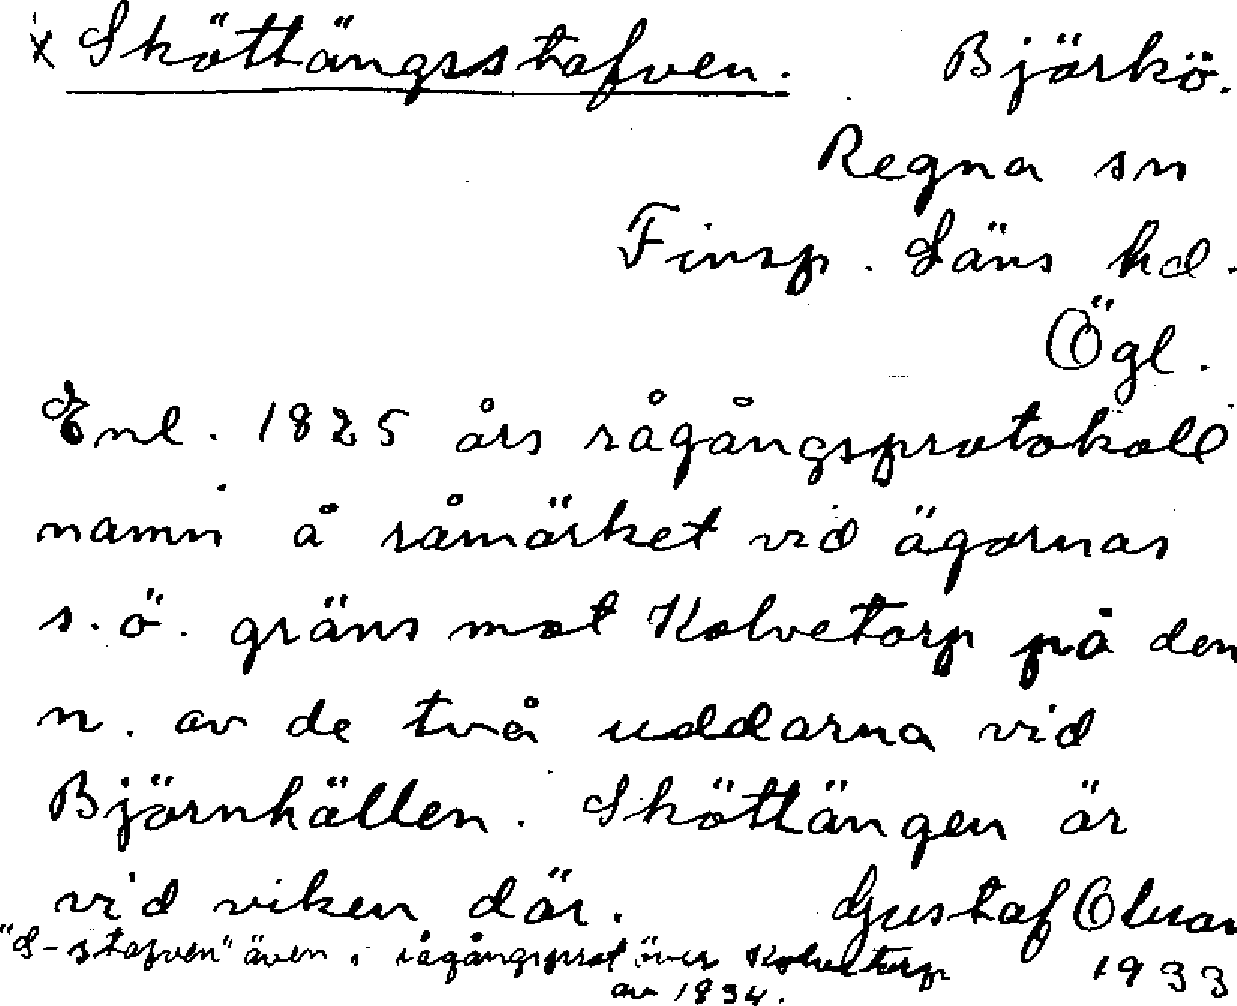 x Sköttängsstafven. Björkö.
Regna sn
Finsp. Läns hd.
Ögl.
Enl. 1825 års rågångsprotokoll
namn å råmärket vid ägornas
s.ö. gräns mot Kolvetorp på den
n. av de två uddarna vid
Björnhällen. Sköttängen är
vid viken där. Gustaf Olsson
"S-stafven" även i rågångsprot över Kolvetorp 1933
av 1834.